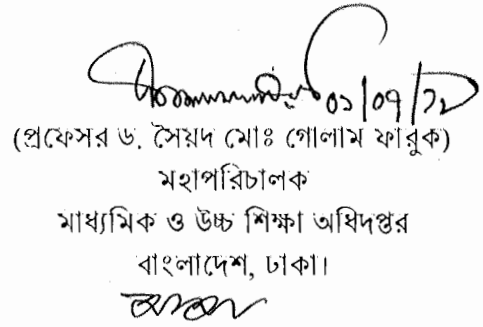 ০১/০৭/২১
(প্রফেসর ড. সৈয়দ মোঃ গোলাম ফারুক)
মহাপরিচালক
মাধ্যমিক ও উচ্চ শিক্ষা অধিদপ্তর
বাংলাদেশ, ঢাকা।